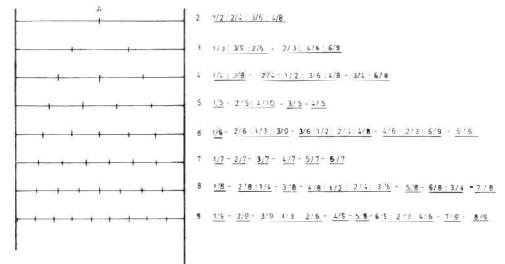 A
2 1/2 : 2/4 : 3/6 : 4/8
3 1/3 : 3/9 : 2/6 - 2/3 : 4/6 : 6/9
4 1/4 : 2/8 - 2/4 : 1/2 : 3/6 : 4/8 - 3/4 : 6/8
5 1/5 - 2/5 : 4/10 - 3/5 - 4/5
6 1/6 - 2/6 : 1/3 : 3/9 - 3/6 : 1/2 : 2/4 : 4/8 - 4/6 : 2/3 : 6/9 - 5/6
7 1/7 - 2/7 - 3/7 - 4/7 - 5/7 - 6/7
8 1/8 - 2/8 : 1/4 - 3/8 - 4/8 : 1/2 : 2/4 : 3/6 - 5/8 - 6/8 : 3/4 - 7/8
9 1/9 - 2/9 - 3/9 1/3 2/6 - 4/9 - 5/9 - 6/9 : 2/3 4/6 - 7/9 - 8/9